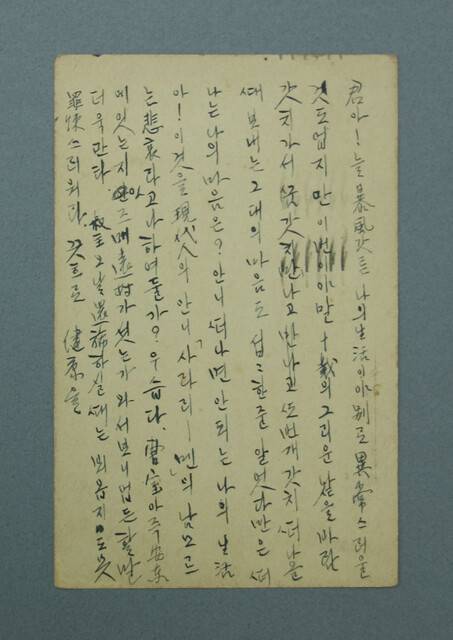 君아! 늘 暴風갓튼 나의生活이야 別로 異常스러울
것도업지만 이번이야말 十載의 그리운 낯을 바람
갓치가서 갓치만나고 만나고 또번개갓치 떠나올
때 보내는 그대의 마음도 섭섭한줄 알엇다만은 떠
나는 나의 마음은? 안니 떠나면 안되는 나의 生活
아! 이것을 現代人의 안니 「사라리—멘」의 남모르
는 悲哀라고나 하여둘가? 우습다 아주 安東
에잇는지 안즈매 遠 가 섯는가 와서보니 업든 할말
더욱만타. 그날 하실때는 뵈옵지도못
罪悚스러워라. 끗흐로 健康을